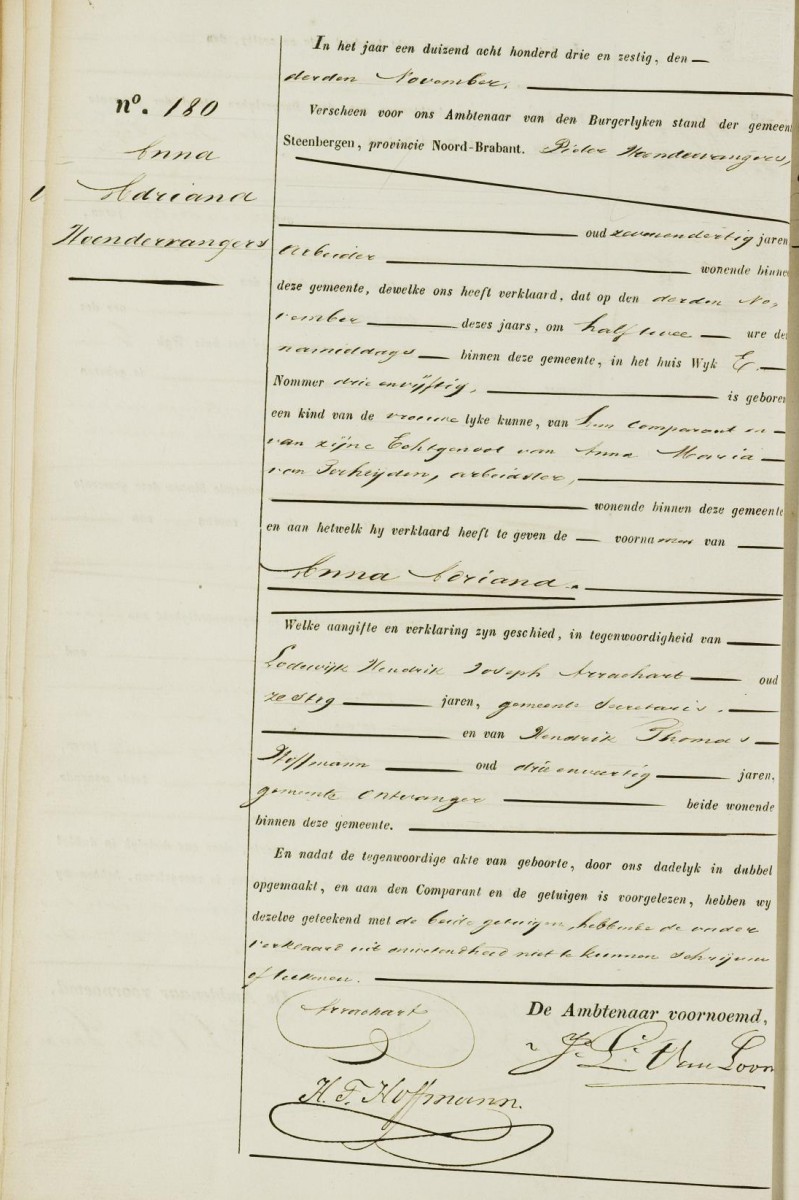 nº. 180
Anna
Adriana
Hoendervangers
In het jaar een duizend acht honderd drie en zestig, den
derden November.
Verscheen voor ons Ambtenaar van den Burgerlyken stand der gemeen
Steenbergen, provincie Noord-Brabant. Pieter Hoendervangers,
oud zevenendertig jaren
arbeider wonende binne
deze gemeente, dewelke ons heeft verklaard, dat op den derden No-
vember dezes jaars, om half twee ure de
namiddags binnen deze gemeente, in het huis Wyk E.
Nommer drie en vijftig, is gebore
een kind van de vrouwe lyke kunne, van hem comparant en
van zijne Echtgenoot van Anna Maria
van Terheijden, arbeidster,
wonende binnen deze gemeente
en aan hetwelk hy verklaard heeft te geven de voornamen van
Anna Adriana.
Welke aangifte en verklaring zyn geschied, in tegenwoordigheid van
Lodewijk Hendrik Joseph Arrachart oud
zestig jaren, gemeente secretaris.
en van Hendrik Thomas
Hoffmann oud drie en veertig jaren,
gemeente ontvanger beide wonende
binnen deze gemeente.
En nadat de tegenwoordige akte van geboorte, door ons dadelyk in dubbel
opgemaakt, en aan den Comparant en de getuigen is voorgelezen, hebben wy
dezelve geteekend met de beide getuigen, hebbende de vader
verklaard uit onwetendheid niet te kunnen schrijven
of teekenen.
Arrachart
De Ambtenaar voornoemd,
Van Loon
H. T. Hoffmann.